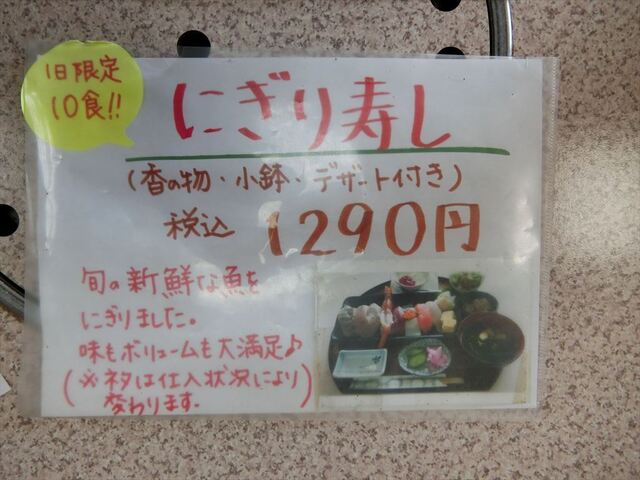 1日限定
10食!!
にぎり寿し
(香の物・小鉢・デザート付き)
税込 1290円
旬の新鮮な魚を
にぎりました。
味もボリュームも大満足♪
(※ネタは仕入状況により
変わります。)